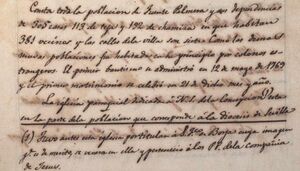 Consta toda la poblacion de Fuente Palmera y sus dependencias
de 305 casas 113 de teja y 192 de chamiza en que habitan
361 vecinos y las calles de la villa son siete. Como las demas
nuevas poblaciones fue habitada en su principio por colonos es-
trangeros. El primer bautismo se administró en 12 de mayo de 1769
y el primer matrimonio se celebró en 21 de dicho mes y año.
La iglesia parroquial dedicada a N.S. de la Concepcion
en la parte de la poblacion que corresponde a la diocesis de Sevilla
(1) Tuvo antes esta iglesia por titular a S. Borja cuya imagen
se venera en ella y perteneció a los PP. de la compañia
de Jesus.